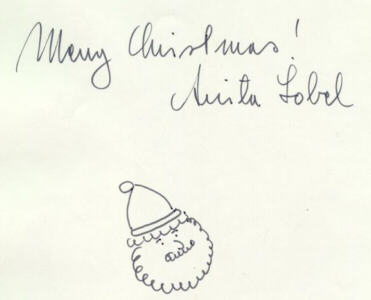 Merry Christmas!
Anita Lobel